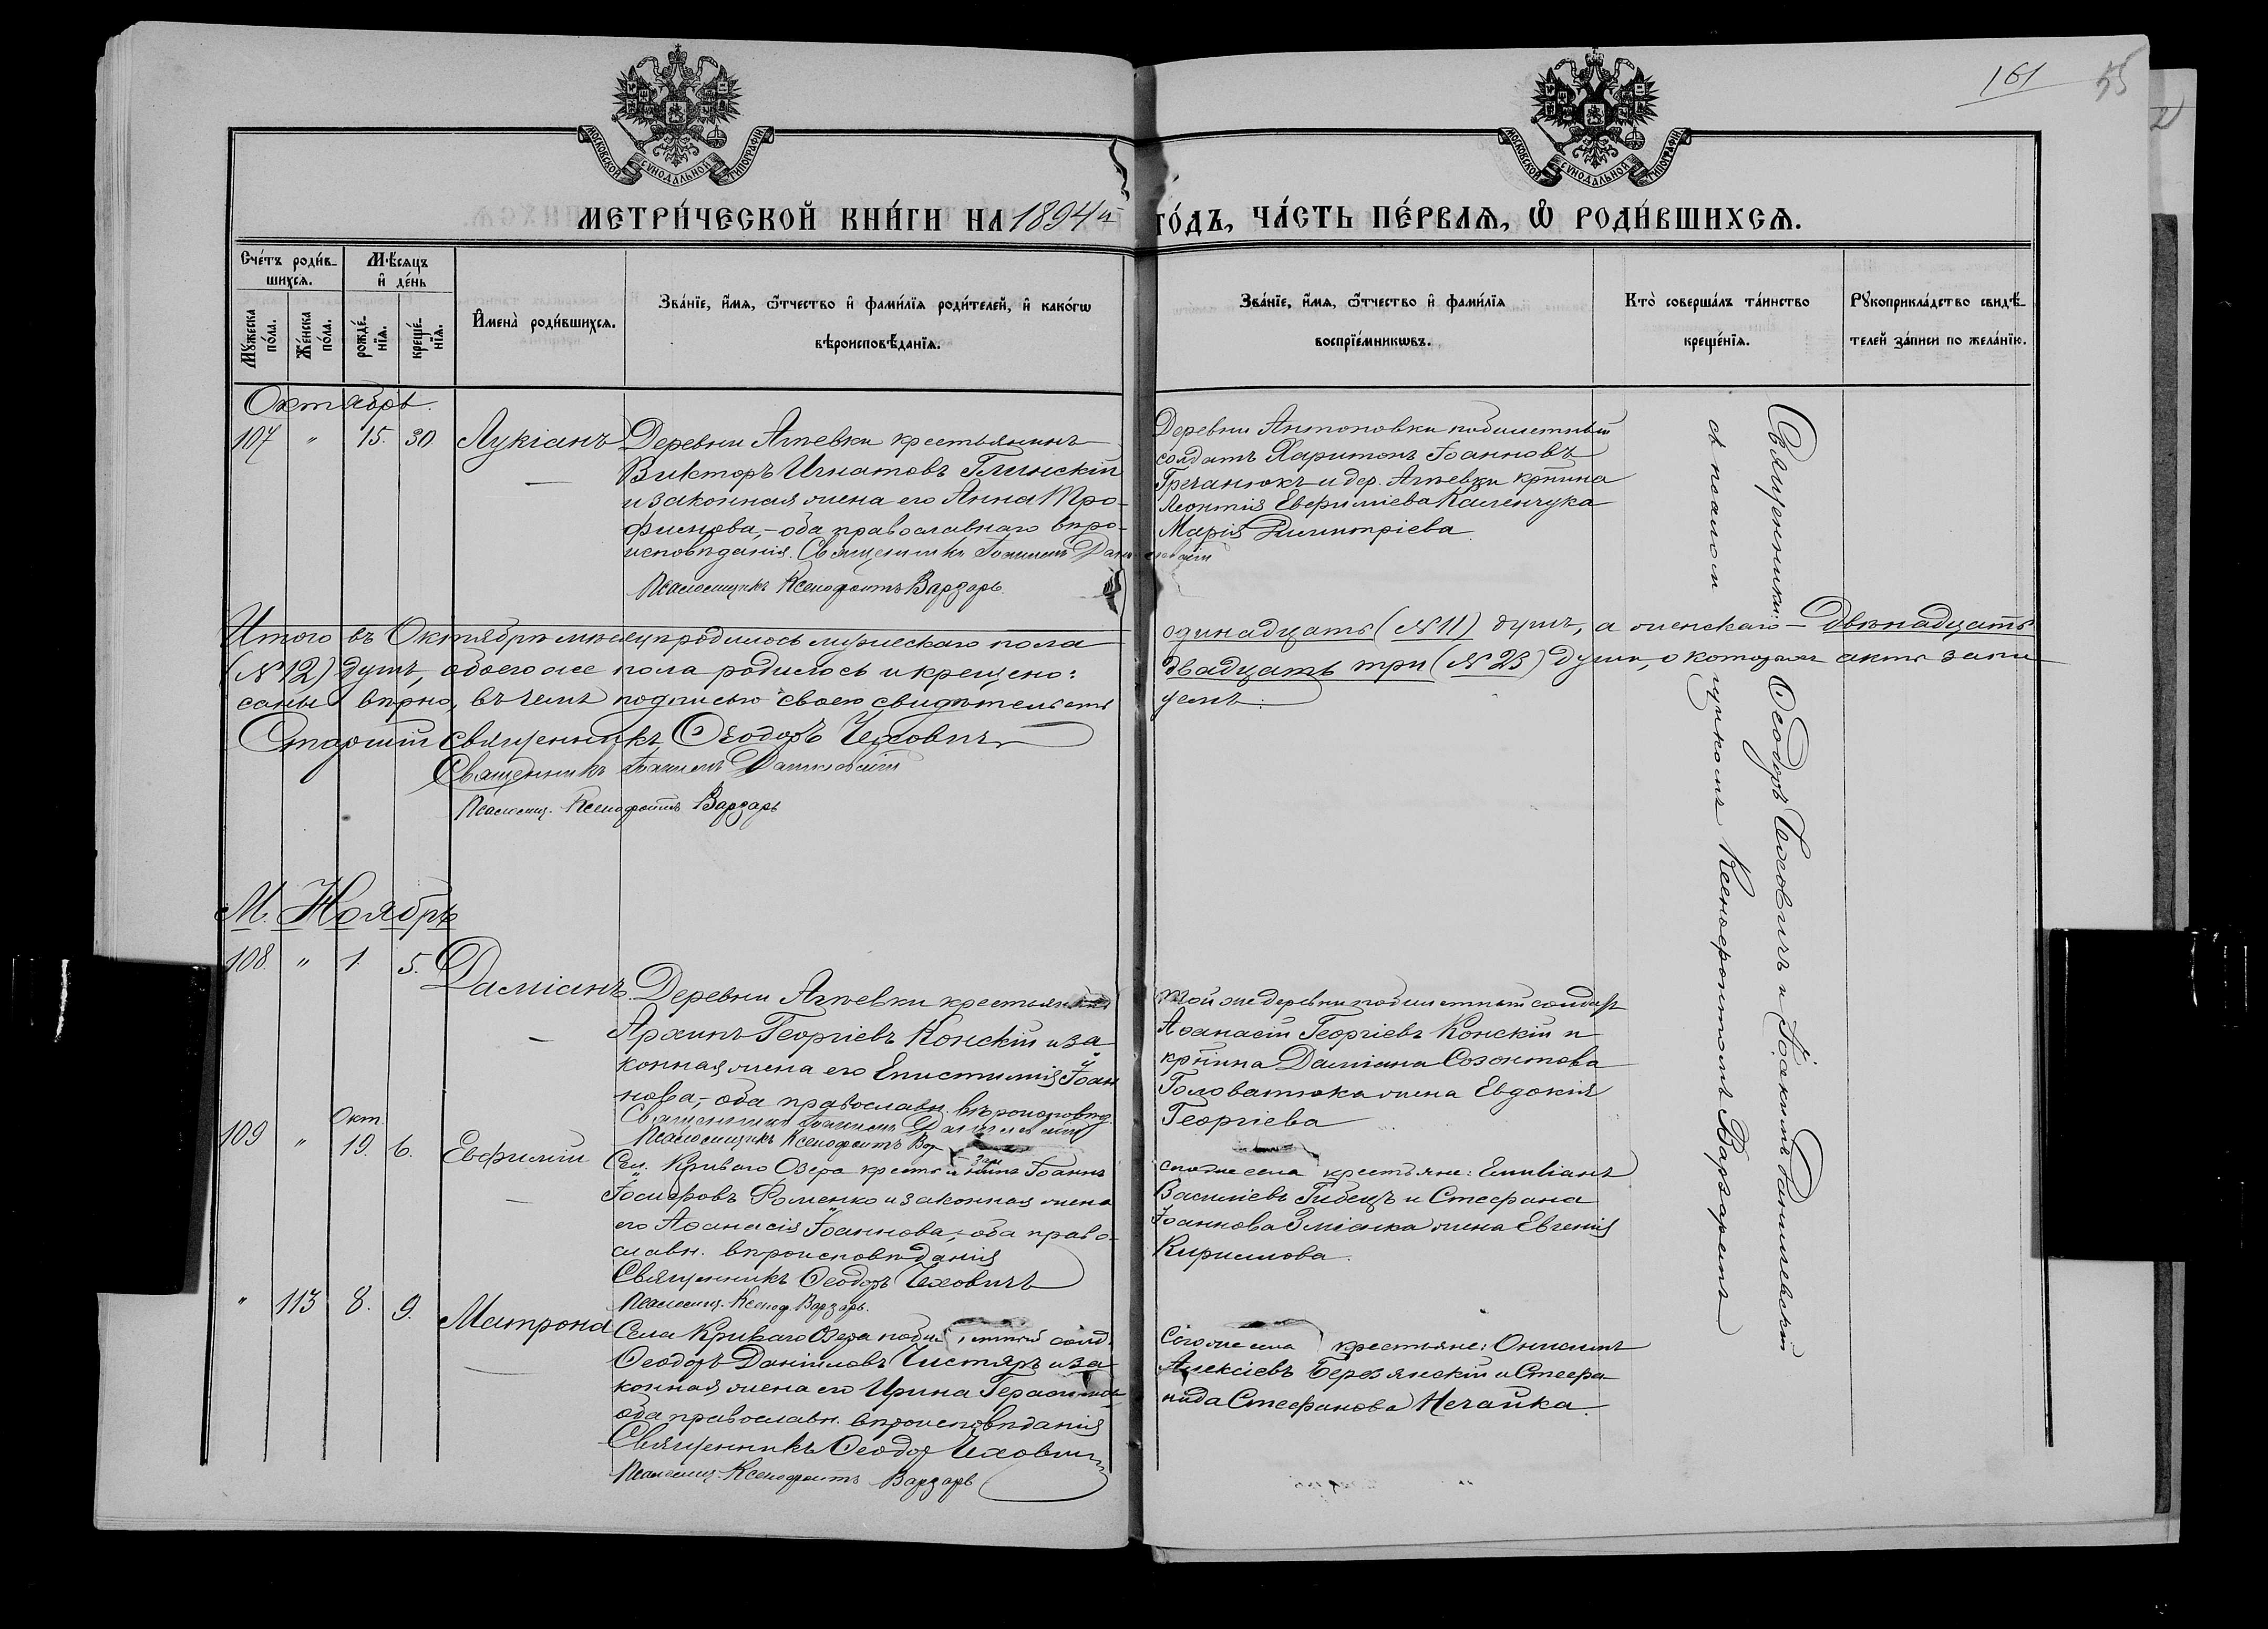 161 55
МОСКОВСКОЙ СѴНОДАЛЬНОЙ ТИПОГРАФІИ
МОСКОВСКОЙ СѴНОДАЛЬНОЙ ТИПОГРАФІИ
МЕТРИ́ЧЕСКОЙ КНИ́ГИ НА 1894й ГО́ДЪ, ЧА́СТЬ ПЕ́РВАѦ, Ѡ РОДИ́ВШИХСѦ.
Сче́тъ роди́в-
шихсѧ.
Мѣ́сяцъ
и де́нь
Мꙋ́жеска по́ла.
Же́нска по́ла.
рожде́-
нїѧ.
креще́-
нїѧ.
Имена̀ роди́вшихсѧ.
Зва́нїе, и́мѧ, ѻ́тчество и фами́лїѧ роди́телей, и како́гѡ
вѣроисповѣ́данїѧ.
Зва́нїе, и́мѧ, ѻ́тчество и фами́лїѧ
воспрїе́мникѡвъ.
Кто̀ соверша́лъ та́инство
креще́нїѧ.
Рꙋкоприкла́дство свидѣ́-
телей за́писи по жела́нїю.
Октябрь.
107 " 15. 30 Лукіанъ
Деревни Агѣевки крестьянинъ
Викторъ Игнатовъ Глинскій
и законная жена его Анна Тро-
фимова,- оба православнаго вѣро-
исповѣданія. Священникъ Іоакимъ Данилевскій
Псаломщикъ Ксенофонтъ Варзарь.
Деревни Антоновки побилетный
солдатъ Харитонъ Іоанновъ
Гречанюкъ и дер. Агѣевки крѣина
Леонтія Евфиміева Каленчука
Марія Димитріева.
Итого въ Октябрѣ мѣсяцѣ родилось мужескаго пола одинадцать (№ 11) душъ, а женскаго - Двѣнадцать
(№ 12) душъ, обоего же пола родилось и крещено: двадцать три (№ 23) души, о которыхъ акты запи-
саны вѣрно, въ чемъ подписью своею свидѣтельств уемъ:
Старшій священникъ Ѳеодоръ Чеховичъ
Священникъ Іоакимъ Данилевскій
Псаломщ. Ксенофонтъ Варзарь
М. Ноябрь
108. " 1. 5. Даміанъ.
Деревни Агѣевки крестьянинъ
Архипъ Георгіевъ Конскій и за-
конная жена его Епистимія Іоан-
нова,- оба православн. вѣроисповѣд.
Священникъ Іоакимъ Данилевскій
Псаломщикъ Ксенофонтъ Вар
зарь
Той же деревни побилетный солдатъ
Аѳанасій Георгіевъ Конскій и
крѣина Даміана Созонтова
Головатюка жена Евдокія
Георгіева
Окт.
109 " 19. 6. Евфимій
Сел. Криваго Озера крестьянинъ Іоаннъ
Іосифовъ Фоменко и законная жена
его Аѳанасія Іоаннова,- оба право-
славн. вѣроисповѣданія
Священникъ Ѳеодоръ Чеховичъ
Псаломщ. Ксеноф. Варзарь.
села крестьяне: Емиліанъ
Василіевъ Гибецъ и Стефана
Іоаннова Зміенка жена Евгенія
Кириллова.
" 113 8. 9. Матрона
Села Криваго Озера побилетный солд.
Ѳеодоръ Даніиловъ Чистяръ и за-
конная жена его Ирина Герасимова
оба православн. вѣроисповѣданія
Священникъ Ѳеодоръ Чеховичъ
Псаломщ. Ксенофонтъ Варзарь
Сего же села крестьяне: Онисимъ
Алексіевъ Березянскій и Стефа-
нида Стефанова Нечайка.
Священники: Ѳеодоръ Чеховичъ и Іоакимъ Данилевскій
съ псаломщикомъ Ксенофонтомъ Варзаремъ